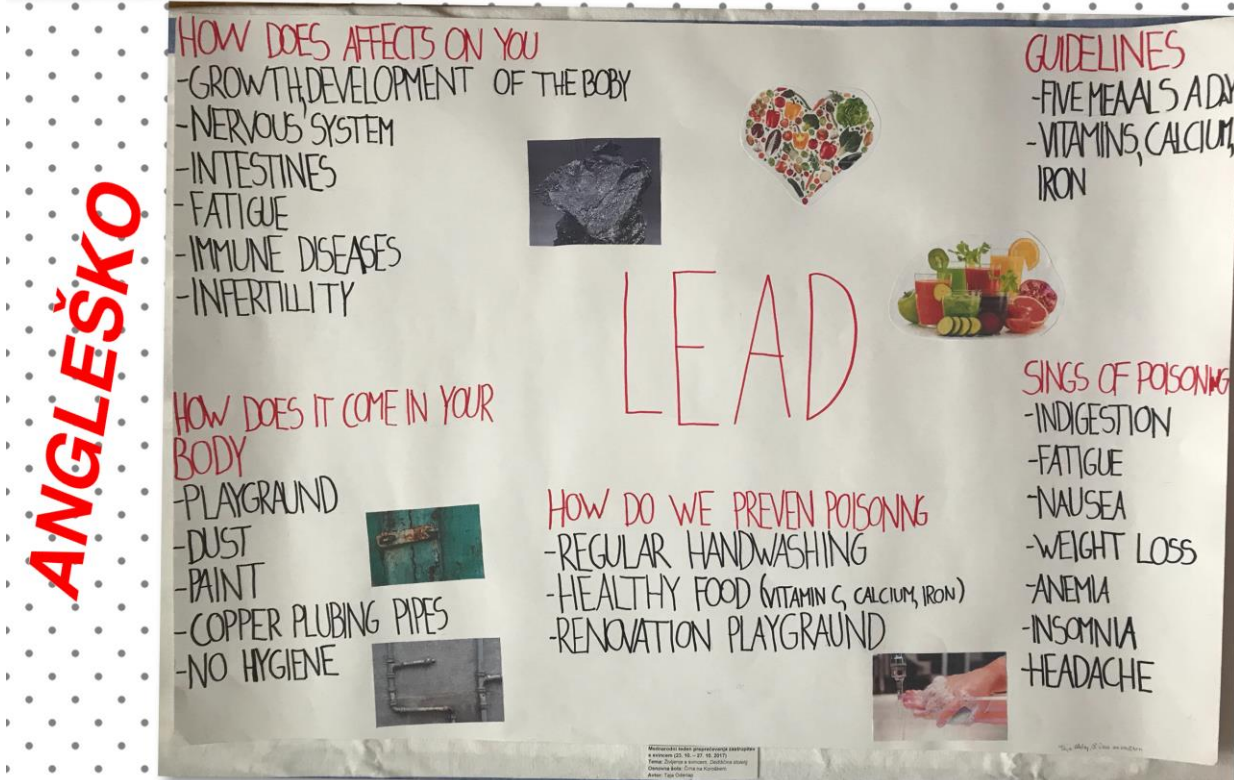 ANGLEŠKO
HOW DOES AFFECTS ON YOU
-GROWTH,DEVELOPMENT OF THE BOBY
-NERVOUS SYSTEM
-INTESTINES
-FATIGUE
-IMMUNE DISEASES
-INFERTILLITY
HOW DOES IT COME IN YOUR
BODY
-PLAYGRAUND
-DUST
-PAINT
-COPPER PLUBING PIPES
-NO HYGIENE
LEAD
HOW DO WE PREVEN POISONNG
-REGULAR HANDWASHING
-HEALTHY FOOD (VITAMIN C, CALCIUM, IRON)
-RENOVATION PLAYGRAUND
GUIDELINES
-FIVE MEAALS A DAY
-VITAMINS, CALCIUM,
IRON
SINGS OF POISONNG
-INDIGESTION
-FATIGUE
-NAUSEA
-WEIGHT LOSS
-ANEMIA
-INSOMNIA
-HEADACHE
Mednarodni teden preprečevanja zastrupitev
s svincem (22. 10. – 27. 10. 2017)
Osnovna šola: Črna na Koroškem